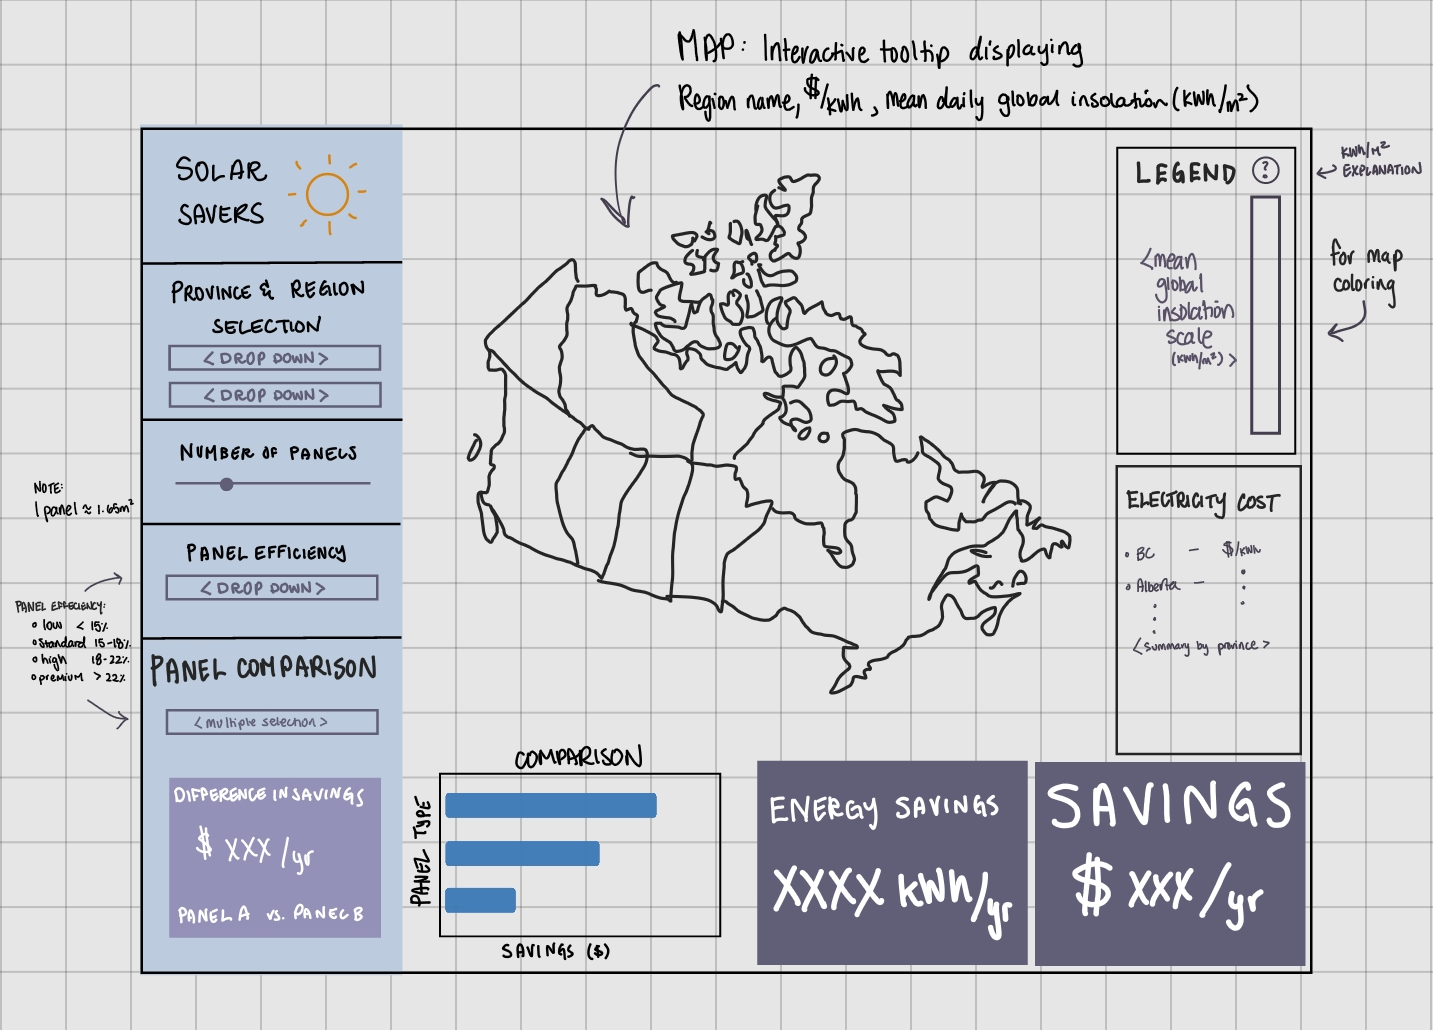 MAP: Interactive tooltip displaying
Region name, $/kWh, mean daily global insolation (kWh/m²)
SOLAR
SAVERS
PROVINCE & REGION
SELECTION
< DROP DOWN >
< DROP DOWN >
NUMBER OF PANELS
NOTE:
1 panel ≈ 1.65m²
PANEL EFFICIENCY
< DROP DOWN >
PANEL EFFECIENCY:
• low < 15%
• Standard 15-18%
• high 18-22%
• premium > 22%
PANEL COMPARISON
< multiple selection >
DIFFERENCE IN SAVINGS
$ XXX /yr
PANEL A vs. PANEL B
COMPARISON
PANEL TYPE
SAVINGS ($)
LEGEND ?
KWH/M²
EXPLANATION
<mean
global
insolation
scale
(kWh/m²) >
for map
coloring
ELECTRICITY COST
• BC – $/kWh
• Alberta –
<summary by province>
ENERGY SAVINGS
XXXX kWh/yr
SAVINGS
$ XXX/yr